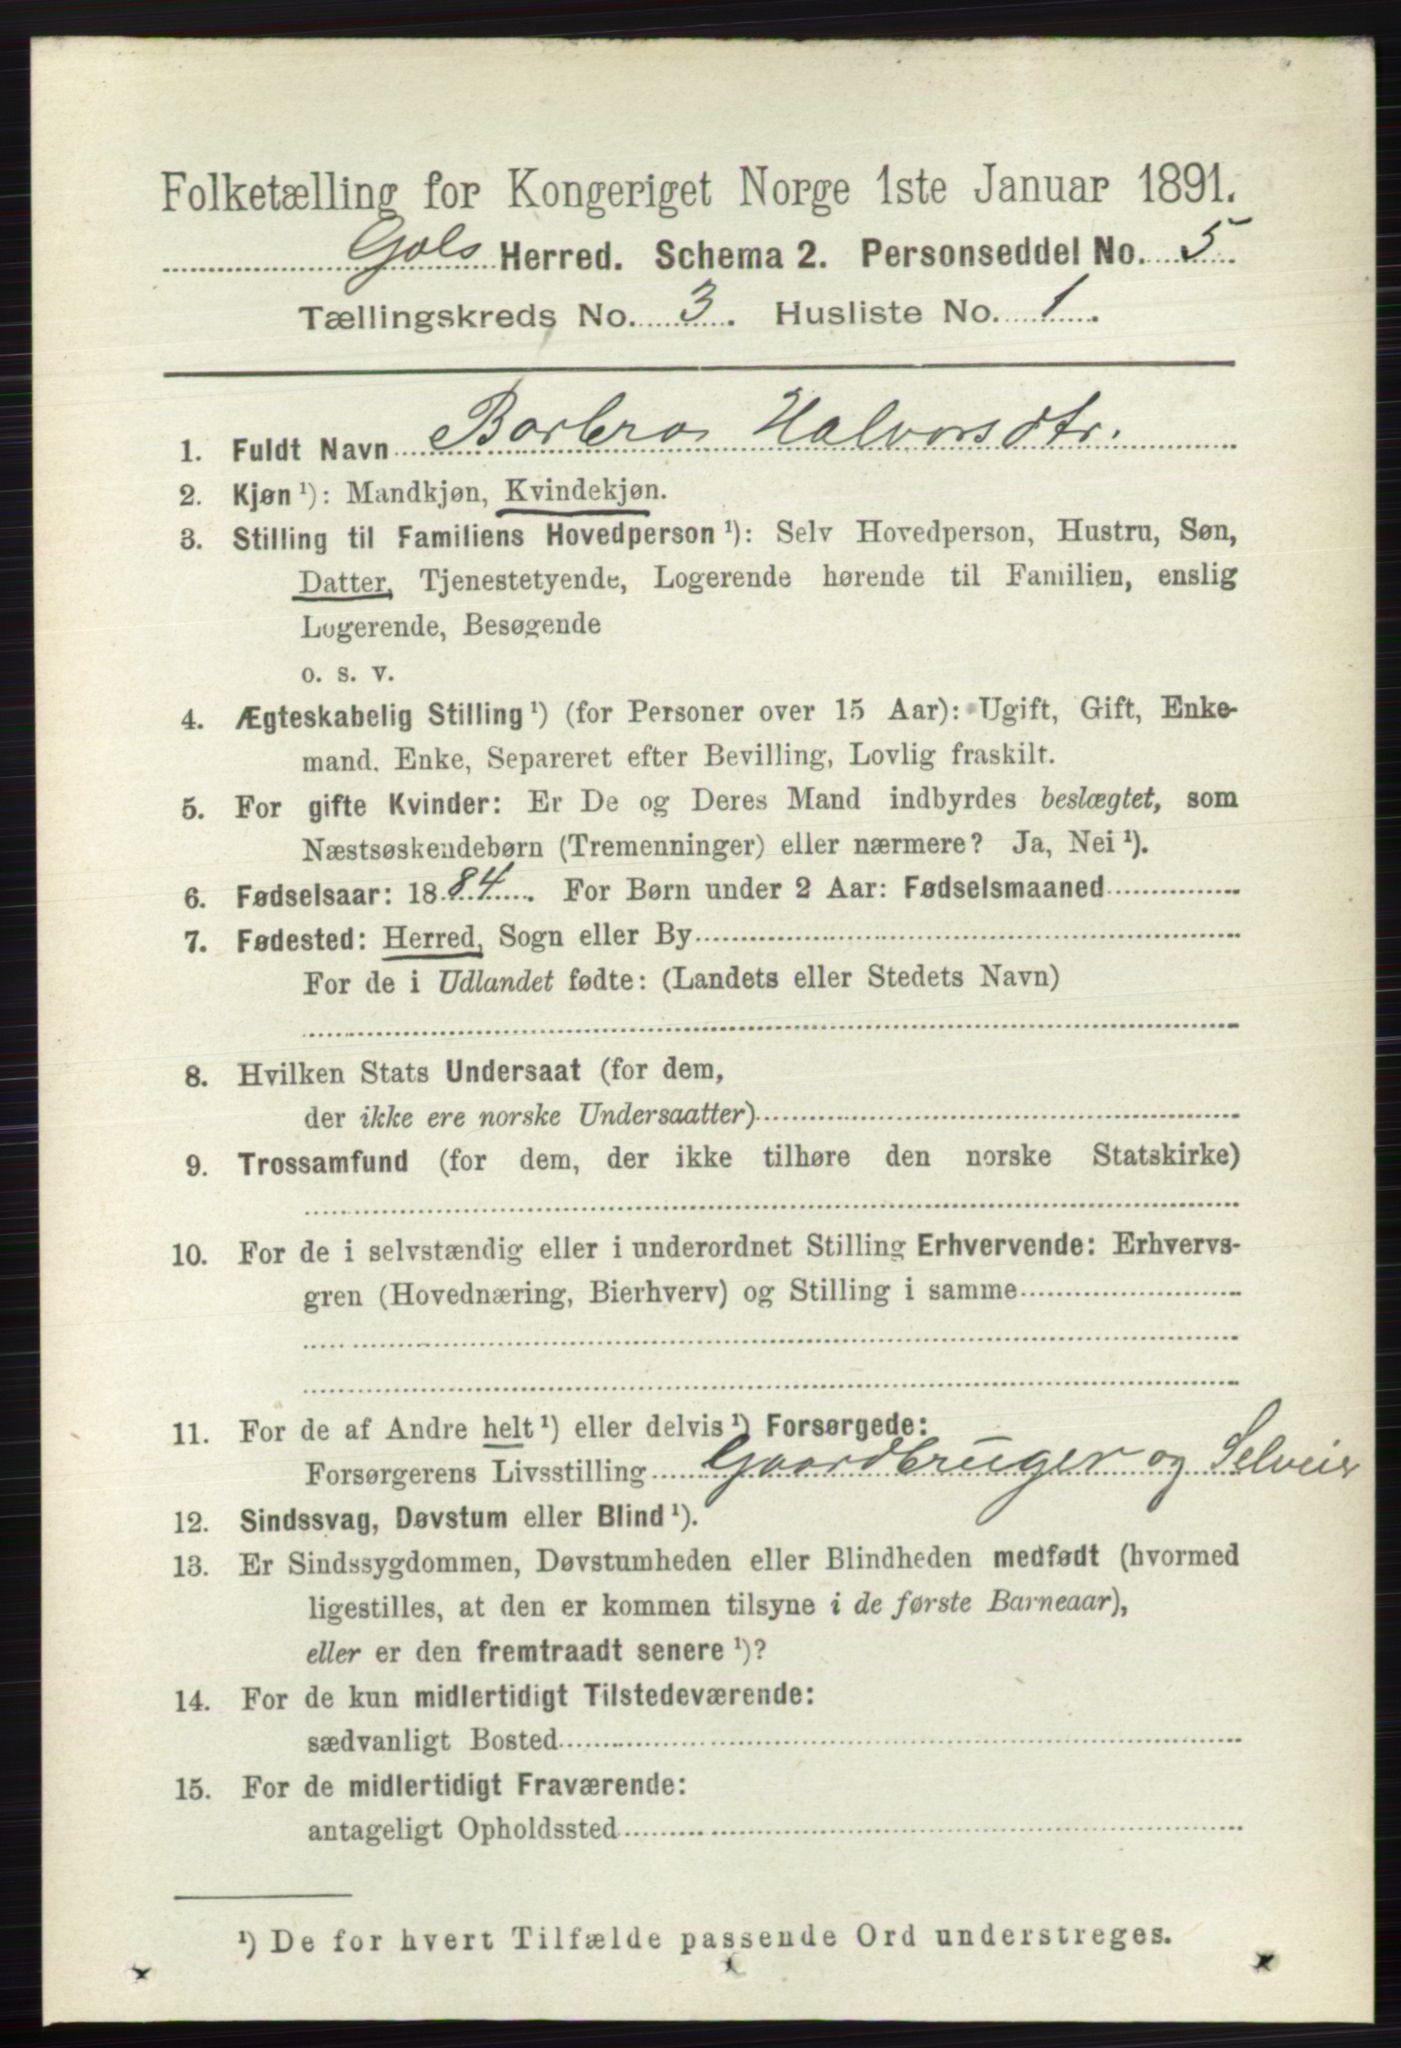 Folketælling for Kongeriget Norge 1ste Januar 1891.
Gols Herred. Schema 2. Personseddel No. 5
Tællingskreds No. 3. Husliste No. 1.
1. Fuldt Navn Barbro Halvorsdtr.
2. Kjøn ¹): Mandkjøn, Kvindekjøn.
3. Stilling til Familiens Hovedperson ¹): Selv Hovedperson, Hustru, Søn,
Datter, Tjenestetyende, Logerende hørende til Familien, enslig
Logerende, Besøgende
o. s. v.
4. Ægteskabelig Stilling ¹) (for Personer over 15 Aar): Ugift, Gift, Enke-
mand. Enke, Separeret efter Bevilling, Lovlig fraskilt.
5. For gifte Kvinder: Er De og Deres Mand indbyrdes beslægtet, som
Næstsøskendebørn (Tremenninger) eller nærmere? Ja, Nei ¹).
6. Fødselsaar: 1884. For Børn under 2 Aar: Fødselsmaaned
7. Fødested: Herred, Sogn eller By
For de i Udlandet fødte: (Landets eller Stedets Navn)
8. Hvilken Stats Undersaat (for dem,
der ikke ere norske Undersaatter)
9. Trossamfund (for dem, der ikke tilhøre den norske Statskirke)
10. For de i selvstændig eller i underordnet Stilling Erhvervende: Erhvervs-
gren (Hovednæring, Bierhverv) og Stilling i samme
11. For de af Andre helt ¹) eller delvis ¹) Forsørgede:
Forsørgerens Livsstilling Gaardbruger og Selveier
12. Sindssvag, Døvstum eller Blind ¹).
13. Er Sindssygdommen, Døvstumheden eller Blindheden medfødt (hvormed
ligestilles, at den er kommen tilsyne i de første Barneaar),
eller er den fremtraadt senere ¹)?
14. For de kun midlertidigt Tilstedeværende:
sædvanligt Bosted
15. For de midlertidigt Fraværende:
antageligt Opholdssted
¹) De for hvert Tilfælde passende Ord understreges.